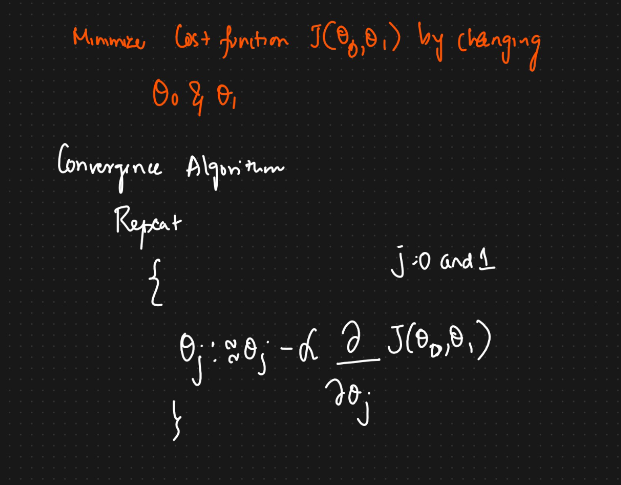 Minimize Cost function J(θ₀,θ₁) by changing
θ₀ & θ₁
Convergence Algorithm
Repeat
{
j:0 and 1
θⱼ:≈θⱼ - α ∂/∂θⱼ J(θ₀,θ₁)
}